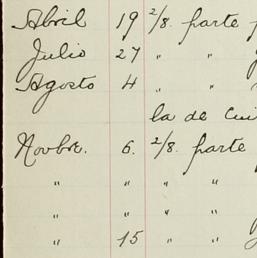 Abril 19 2/8. parte
Julio 27 " "
Agosto 4 " "
la de
Novbre. 6. 2/8. parte
" " " "
" " " "
" 15 " "